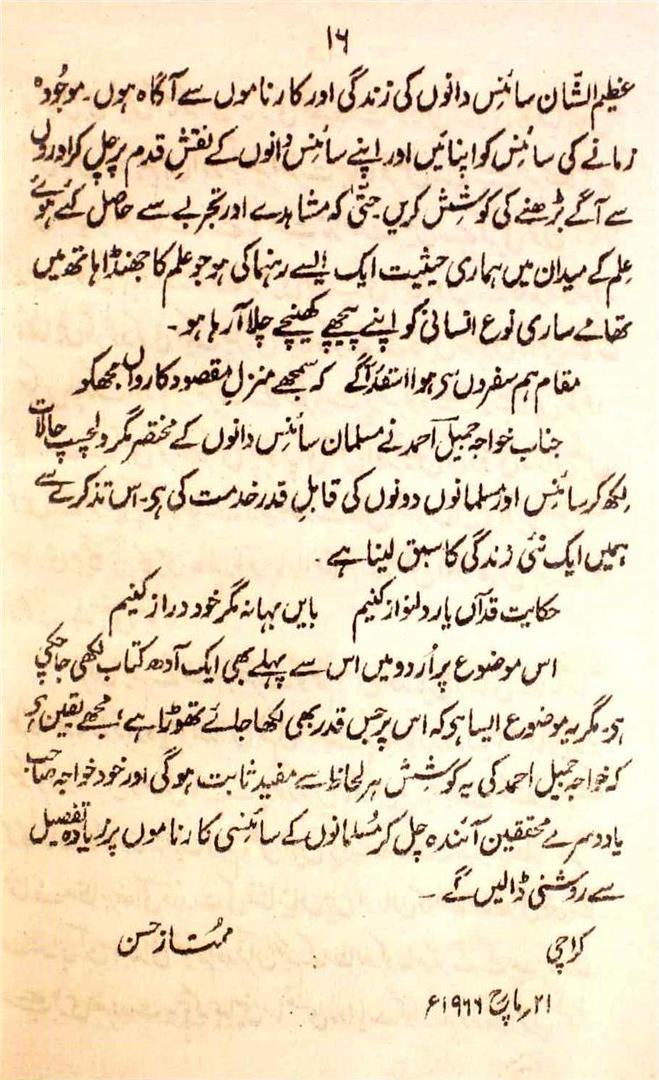 ۱۶
عظیم الشّان سائنس دانوں کی زندگی اور کارناموں سے آگاہ ہوں۔ موجُودہ
زمانے کی سائنس کو اپنائیں اور اپنے سائنس دانوں کے نقشِ قدم پر چل کر اوروں
سے آگے بڑھنے کی کوشش کریں حتیٰ کہ مشاہدے اور تجربے سے حاصل کئے ہوئے
عِلم کے میدان میں ہماری حیثیت ایک ایسے رہنما کی ہو جو علم کا جھنڈا ہاتھ میں
تھامے ساری نوع انسانی کو اپنے پیچھے کھینچے چلا آ رہا ہو۔
مقام ہم سفروں سے ہوا اسقدر آگے کہ سمجھے منزلِ مقصود کارواں مجھکو
جناب خواجہ جمیل احمد نے مسلمان سائنس دانوں کے مختصر مگر دلچسپ حالات
لکھ کر سائنس اور مسلمانوں دونوں کی قابلِ قدر خدمت کی ہے۔ اس تذکرے سے
ہمیں ایک نئی زندگی کا سبق لینا ہے۔
حکایت قدآں یار دلنواز کنیم بایں بہانہ مگر خود دراز کنیم
اس موضوع پر اُردو میں اس سے پہلے بھی ایک آدھ کتاب لکھی جا چکی
ہے۔ مگر یہ موضوع ایسا ہے کہ اس پر جس قدر بھی لکھا جائے تھوڑا ہے؛ مجھے یقین ہے
کہ خواجہ جمیل احمد کی یہ کوشش ہر لحاظ سے مفید ثابت ہوگی اور خود خواجہ صاحب
یا دوسرے محققین آئندہ چل کر مُسلمانوں کے سائنسی کارناموں پر زیادہ تفصیل
سے روشنی ڈالیں گے۔
کراچی ممتاز حسن
۲۱ر مارچ ۱۹۶۶ء